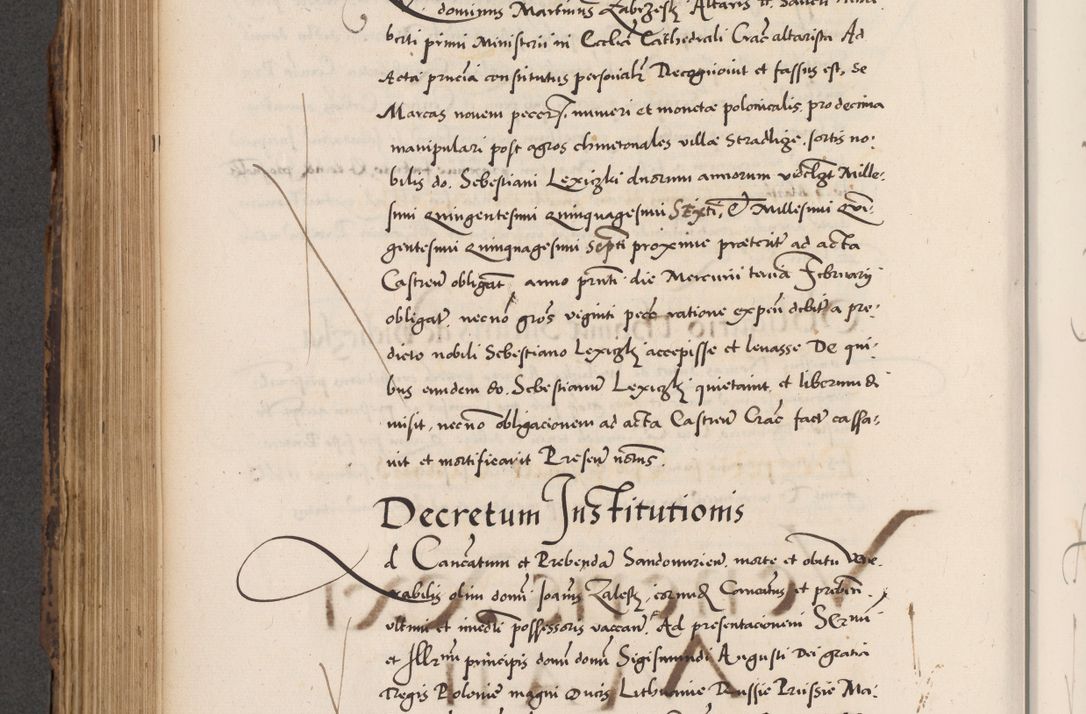 dominus Martinus Zabrzesky Altaris tt. Sancti
berti primi Ministerii in Ecclia Cathedrali Crac altarista Ad
Acta pncia constitutus personalr Recognovit et fassus est, se
Marcas novem pecc. numeri et monetæ polonicalis, pro decima
manipulari post agros chmetonales villæ Stradlize, sortis no-
bilis do. Sebestiani Lexiczki duorum annorum vidclzt Mille-
simi Quingentesimi Quinquagesimi Sexti, et Millesimi Qvi-
gentesimi Quinquagesimi Septi proxime præterit ad acta
Castren obligat, anno pnti die Mercurii tercia Februarii
obligat, necno gros viginti pecc ratione expen debit a pre-
dicto nobili Sebestiano Lexiczky accepisse et levasse De qui-
bus eundem do. Sebestianu Lexiczky quietavit, et liberum di
misit, necno obligacionem ad acta Castren Crac fact cassa-
vit et mortificavit Presen
Decretum Institutionis
d Cancatum et Prebenda Sandomirien, morte et obitu Ve-
nerabilis olim domi Joanis Zalesky, eormd Canoatus et preben
ultimi et imedti possessoris vaccan, Ad presentacionem Sermi
et Illrmi principis domi domi Sigismundi Augusti Dei gratia
Regis Polonie magni Ducis Lithuanie Russie Prussie Ma-